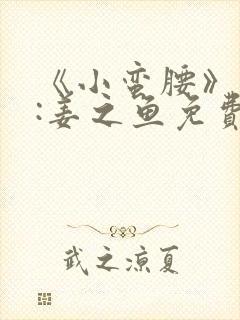 《小蛮腰》
:姜之鱼免費
武之凉夏